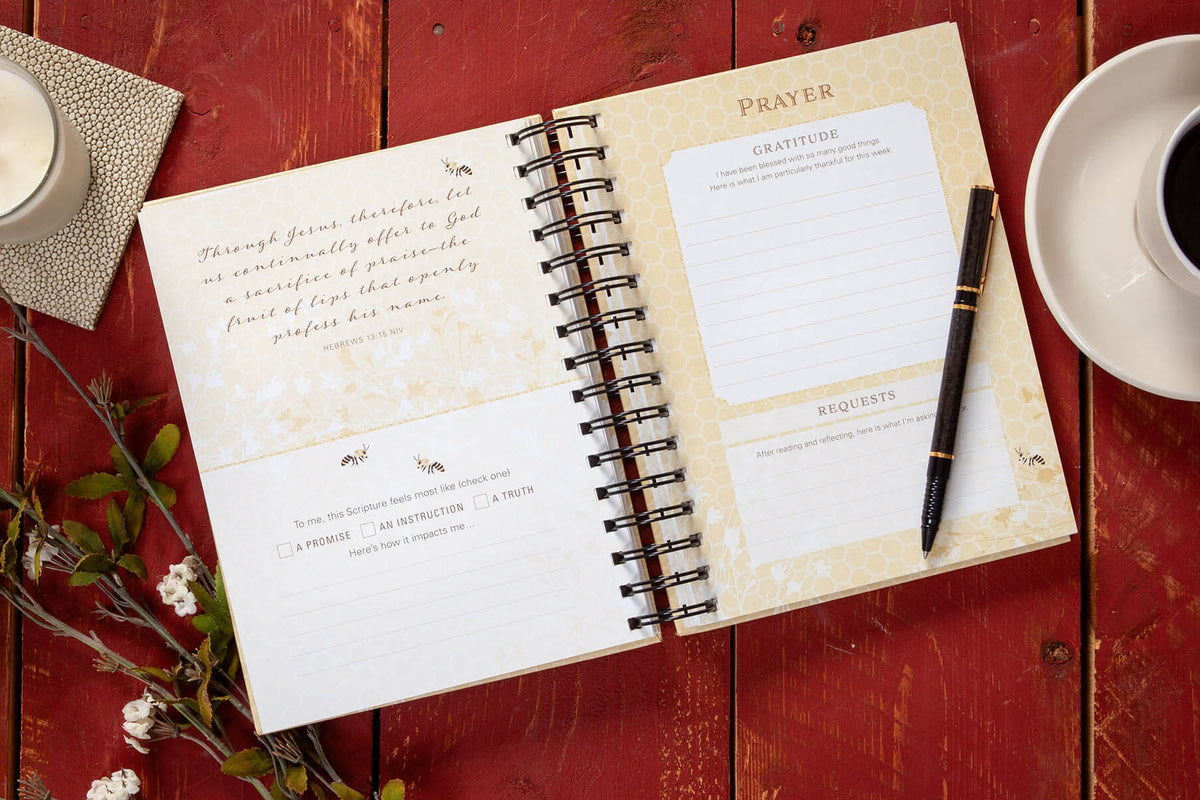 Through Jesus, therefore, let
us continually offer to God
a sacrifice of praise—the
fruit of lips that openly
profess his name.
HEBREWS 13:15 NIV
To me, this Scripture feels most like (check one)
A PROMISE AN INSTRUCTION A TRUTH
Here's how it impacts me...
PRAYER
GRATITUDE
I have been blessed with so many good things
Here is what I am particularly thankful for this week.
REQUESTS
After reading and reflecting, here is what I'm asking